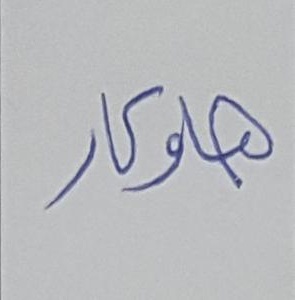 هلوکار